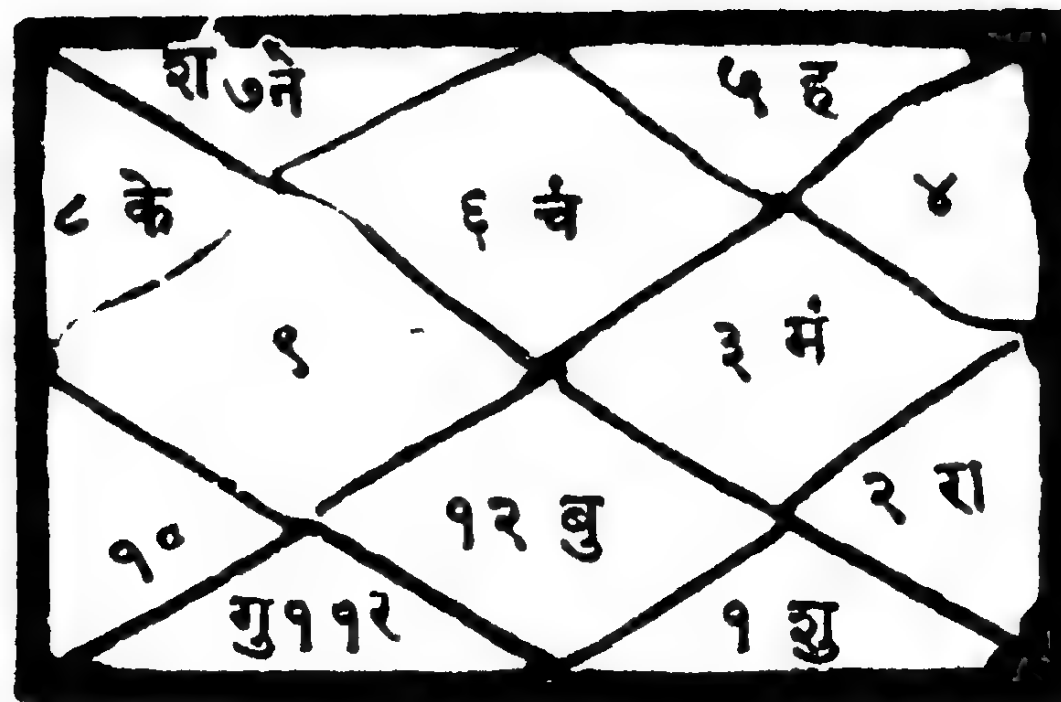 श ७ने
५ ह
८ के
६ चं
४
९
३ मं
१०
१२ बु
२ रा
गु११२
१ शु